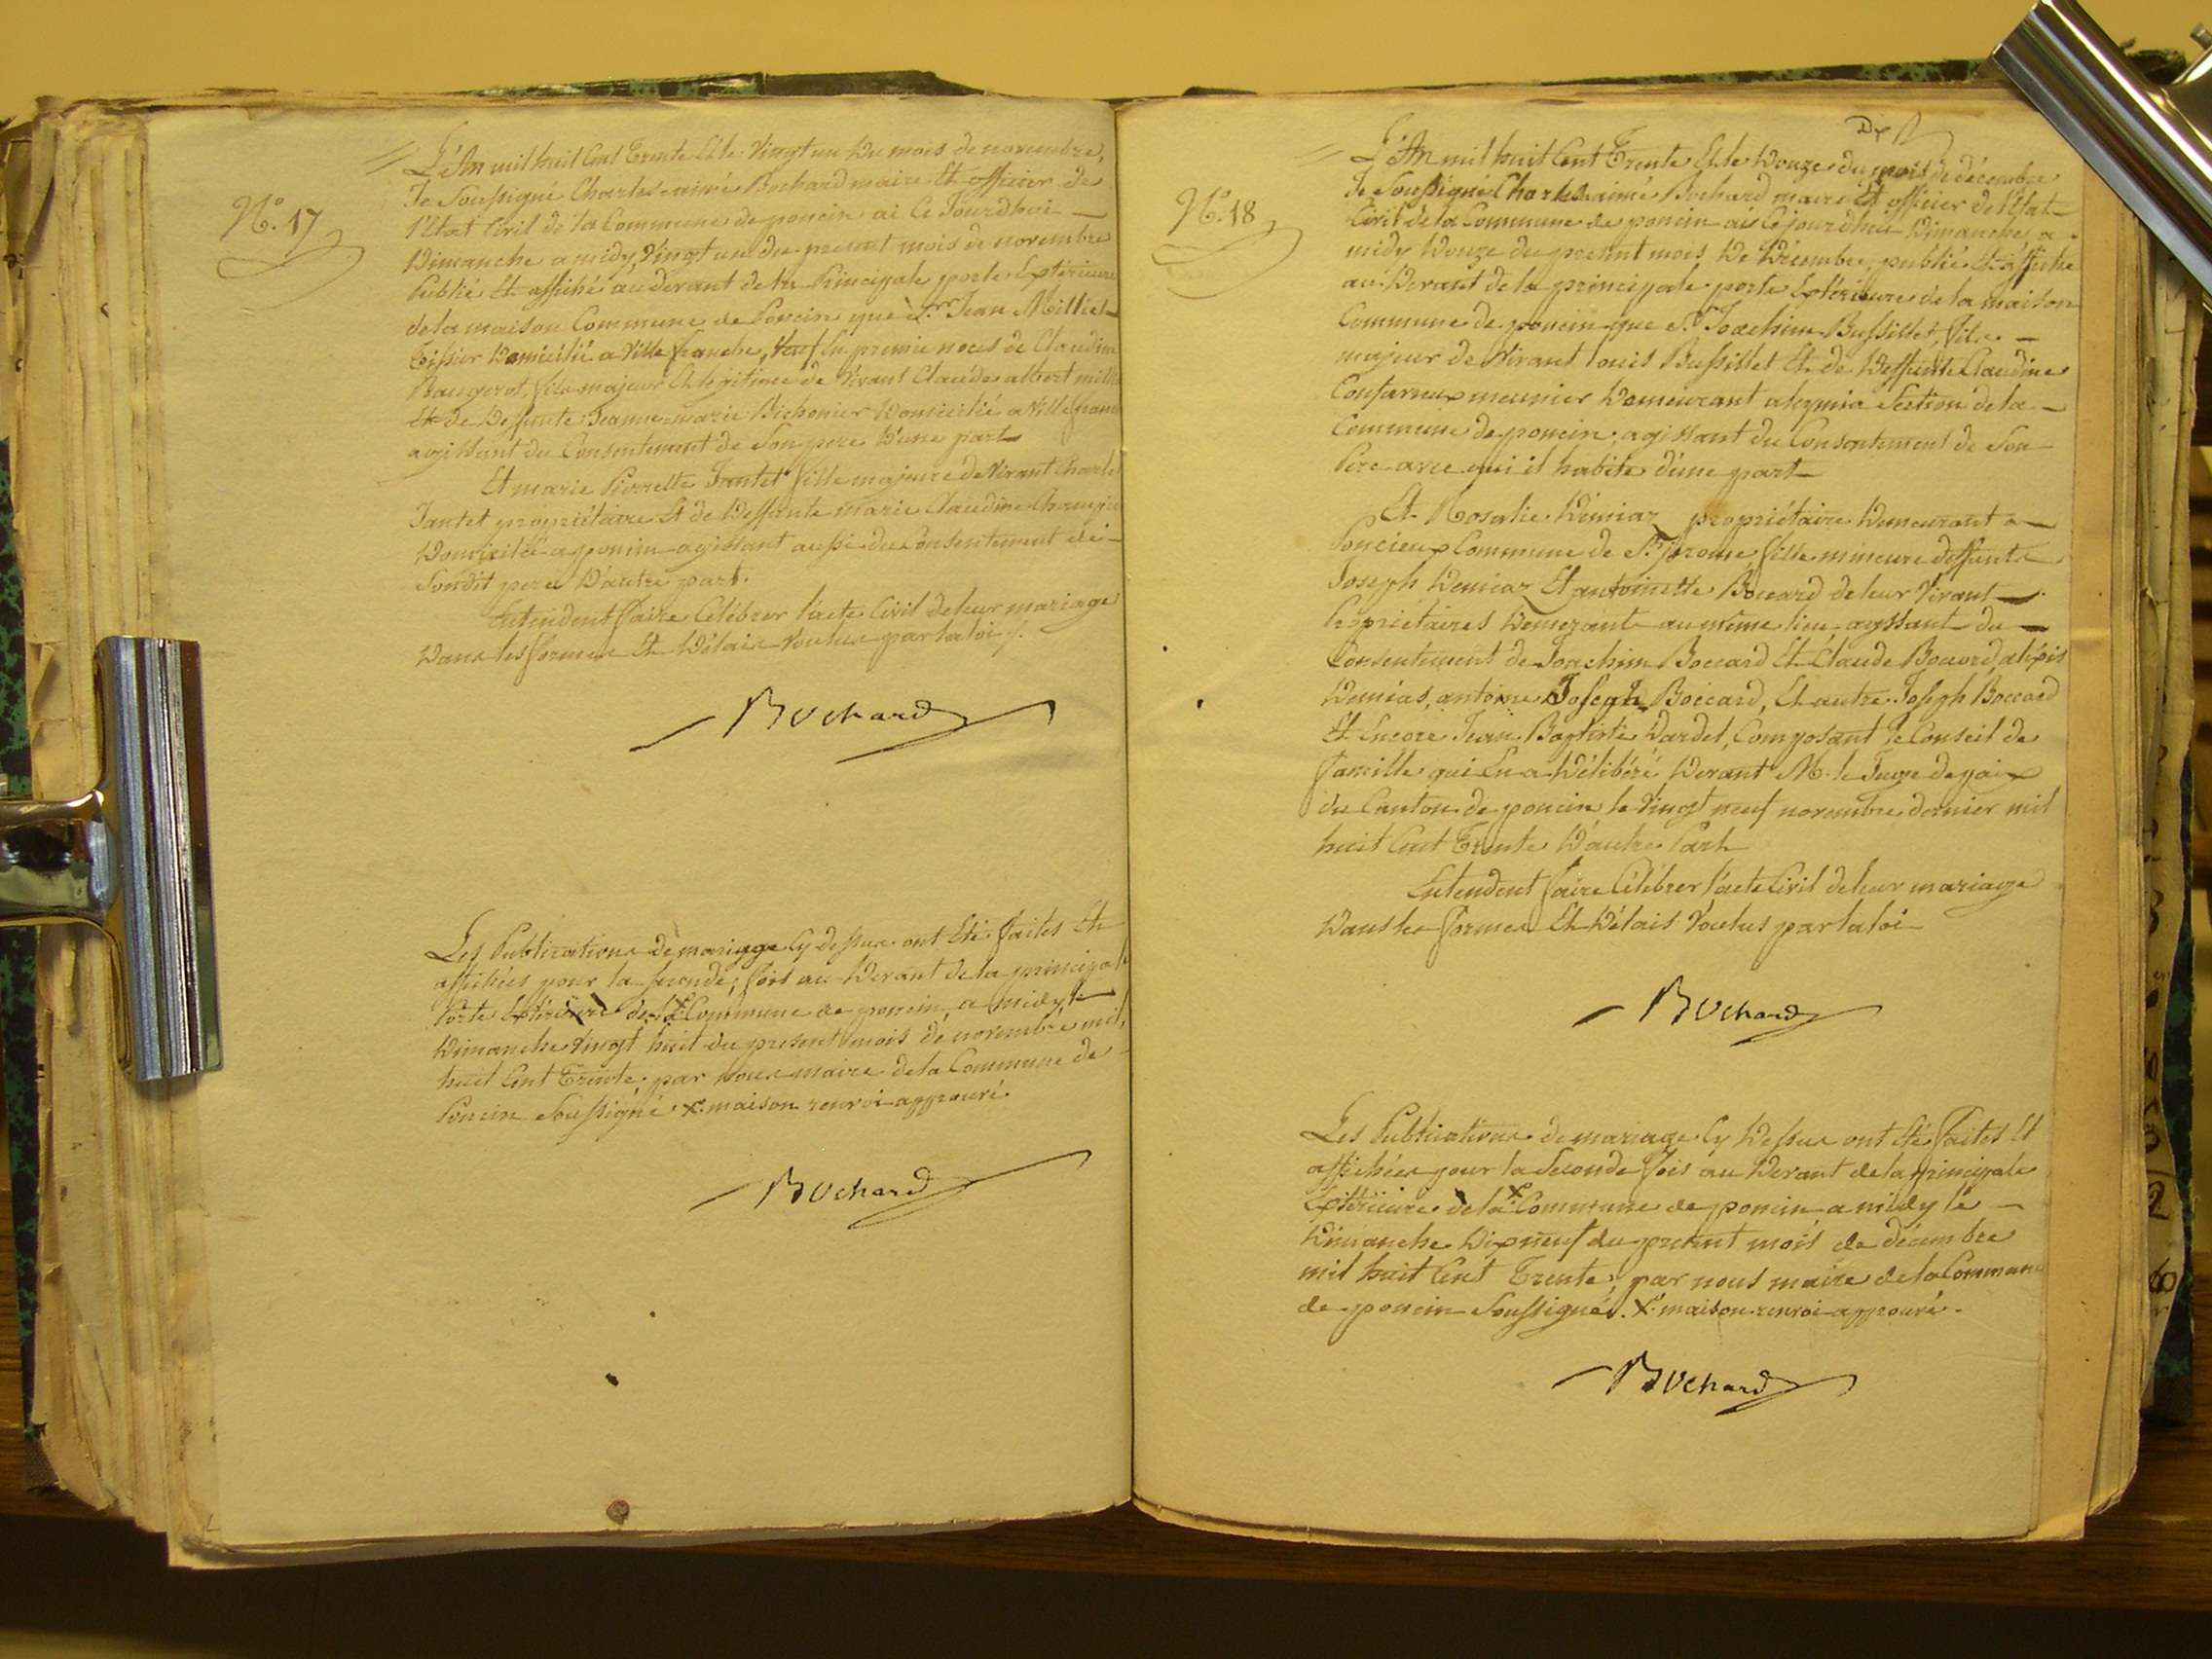 N.º 17
L'An mil huit Cent Trente Et le Vingt un du mois de novembre,
Je Soussigné Charles-aimé Bochard maire Et officier de
l'Etat Civil de la Commune de poncin ai Ce Jourdhui
Dimanche a midy, Vingt un du present mois de novembre
Publié Et affiché au devant de la Principale porte Extérieure
de la maison Commune de Poncin que S.r Jean Milliet
Tissier Domicilié a Ville franche, Veuf En premie noces de Claudine
fils majeur Et légitime de Vivant Claude albert
Et de Deffunte Jeanne-marie Bichonier Domicilié a Ville franche
agissant du Consentement de Son pere D'une part
Et marie Pierrette Jantet fille majeure de Vivant Charles
Jantet propriétaire Et de Deffunte marie Claudine
Domiciliée a poncin agissant aussi du Consentement de
Son dit pere D'autre part.
Entendent faire Célébrer l'acte Civil de leur mariage
Dans les formes Et Délais Voulus par la loi ./.
Bochard
Les Publications de mariage Cy dessus ont Eté faites Et
affichées pour la seconde fois au Devant de la principale
Porte Extérieure de la x Commune de poncin, a midy le
Dimanche Vingt huit du present mois de novembre mil
huit Cent Trente, par nous maire de la Commune de
Poncin Soussigné x. maison renvoi approuvé.
Bochard
N.º 18
L'An mil huit Cent Trente Et le Douze du mois de décembre
Je Soussigné Charles aimé Bochard maire Et officier de l'Etat
Civil de la Commune de poncin ai Cejourdhui Dimanche a
midy Douze du present mois De Décembre, publié Et affiché
au Devant de la principale porte Extérieure de la maison
Commune de poncin que S.r Joachim Bussillet, fils
majeur de Vivant louis Bussillet Et de Deffunte Claudine
meunier Demeurant a Section de la
Commune de poncin, agissant du Consentement de Son
Pere avec qui il habite d'une part
Et Rosalie Démiaz propriétaire Demeurant a
Poncieux Commune de S.t jerome, fille mineure deffunt
Joseph Demiaz Et antoinette Boccard de leur Vivant
Propriétaires au même lieu, agissant du
Consentement de Joachim Boccard Et Claude Boccard, aléxis
Demias, antoine Joseph Boccard, Et autre Joseph Boccard
Et Encore Jean Baptiste Dardet, Composant le Conseil de
famille qui En a Délibéré Devant M. le Juge de paix
du Canton de poncin le Vingt neuf novembre dernier mil
huit Cent Trente D'autre Part
Entendent faire Célébrer l'acte Civil de leur mariage
Dans les formes Et Délais Voulus par la loi
Bochard
Les Publications de mariage Cy Dessus ont Eté faites Et
affichées pour la Seconde fois au Devant de la principale
Extérieure de la x Commune de poncin a midy le
Dimanche Dix neuf du present mois de décembre
mil huit Cent Trente, par nous maire de la Commune
de poncin Soussigné. x. maison renvoi approuvé.
Bochard